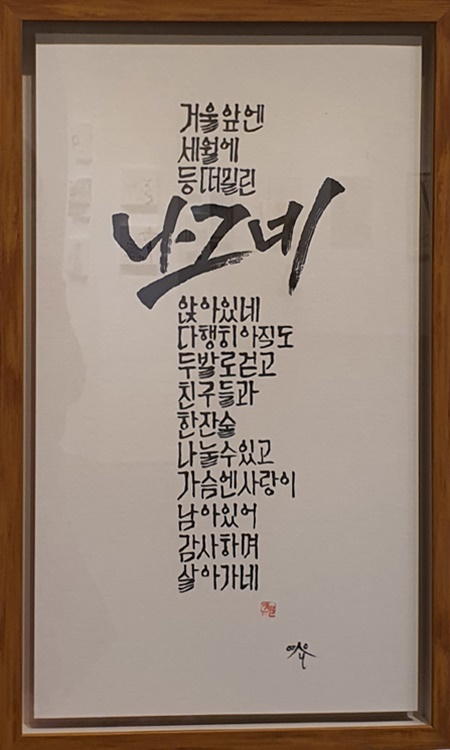 거울앞엔
세월에
등떠밀린
나그네
앉아있네
다행히아직도
두발로걷고
친구들과
한잔술
나눌수있고
가슴엔사랑이
남아있어
감사하며
살아가네